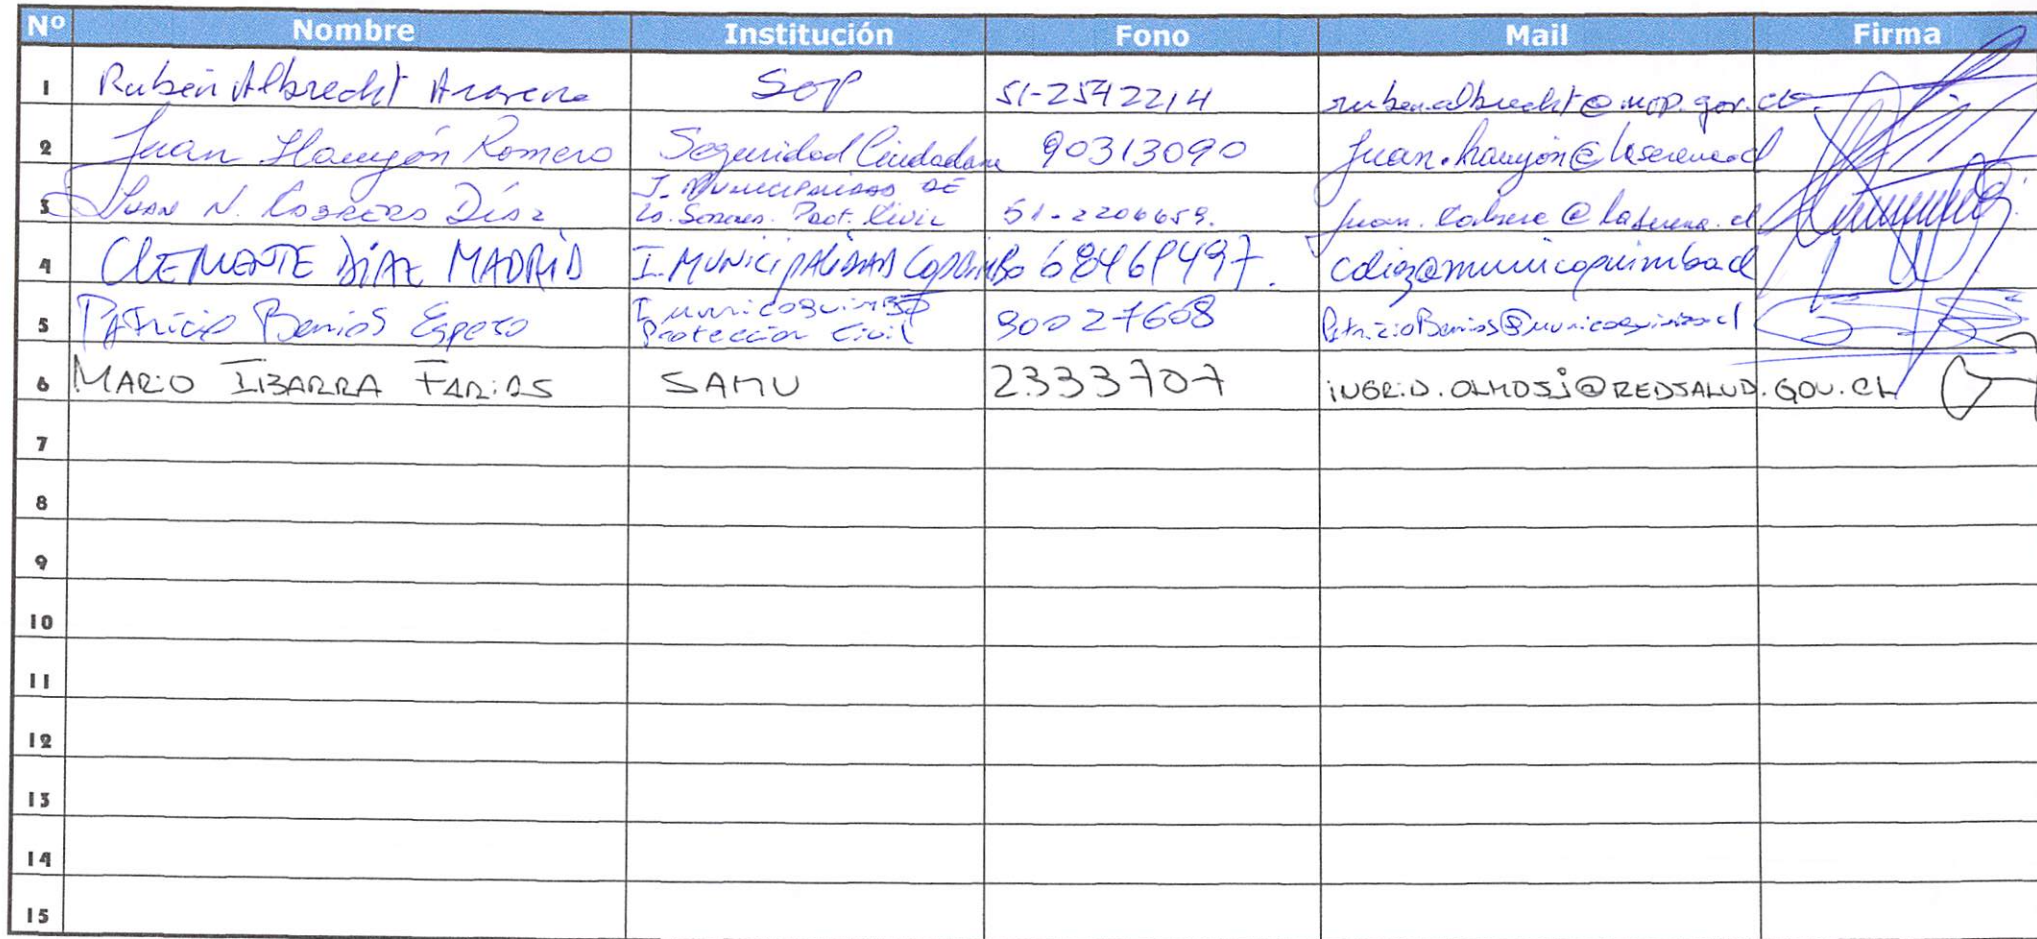 Nº Nombre Institución Fono Mail Firma
1 Rubén Albrecht Aravena SOP 51-2542214 ruben.albrecht@mop.gov.cl
2 Juan Romero Seguridad Ciudadana 90313090
3 Juan N. Díaz I. Municipalidad de La Serena. Prot. Civil 51-2206659. @laserena.cl
4 CLEMENTE DÍAZ MADRID I. MUNICIPALIDAD COQUIMBO cdiaz@municoquimbo.cl
5 Patricio Berrios I. municoquimbo Protección Civil 90027608
6 MARIO IBARRA FARIAS SAMU 2333707 INGRID.OLMOSJ@REDSALUD.GOV.CL
7
8
9
10
11
12
13
14
15